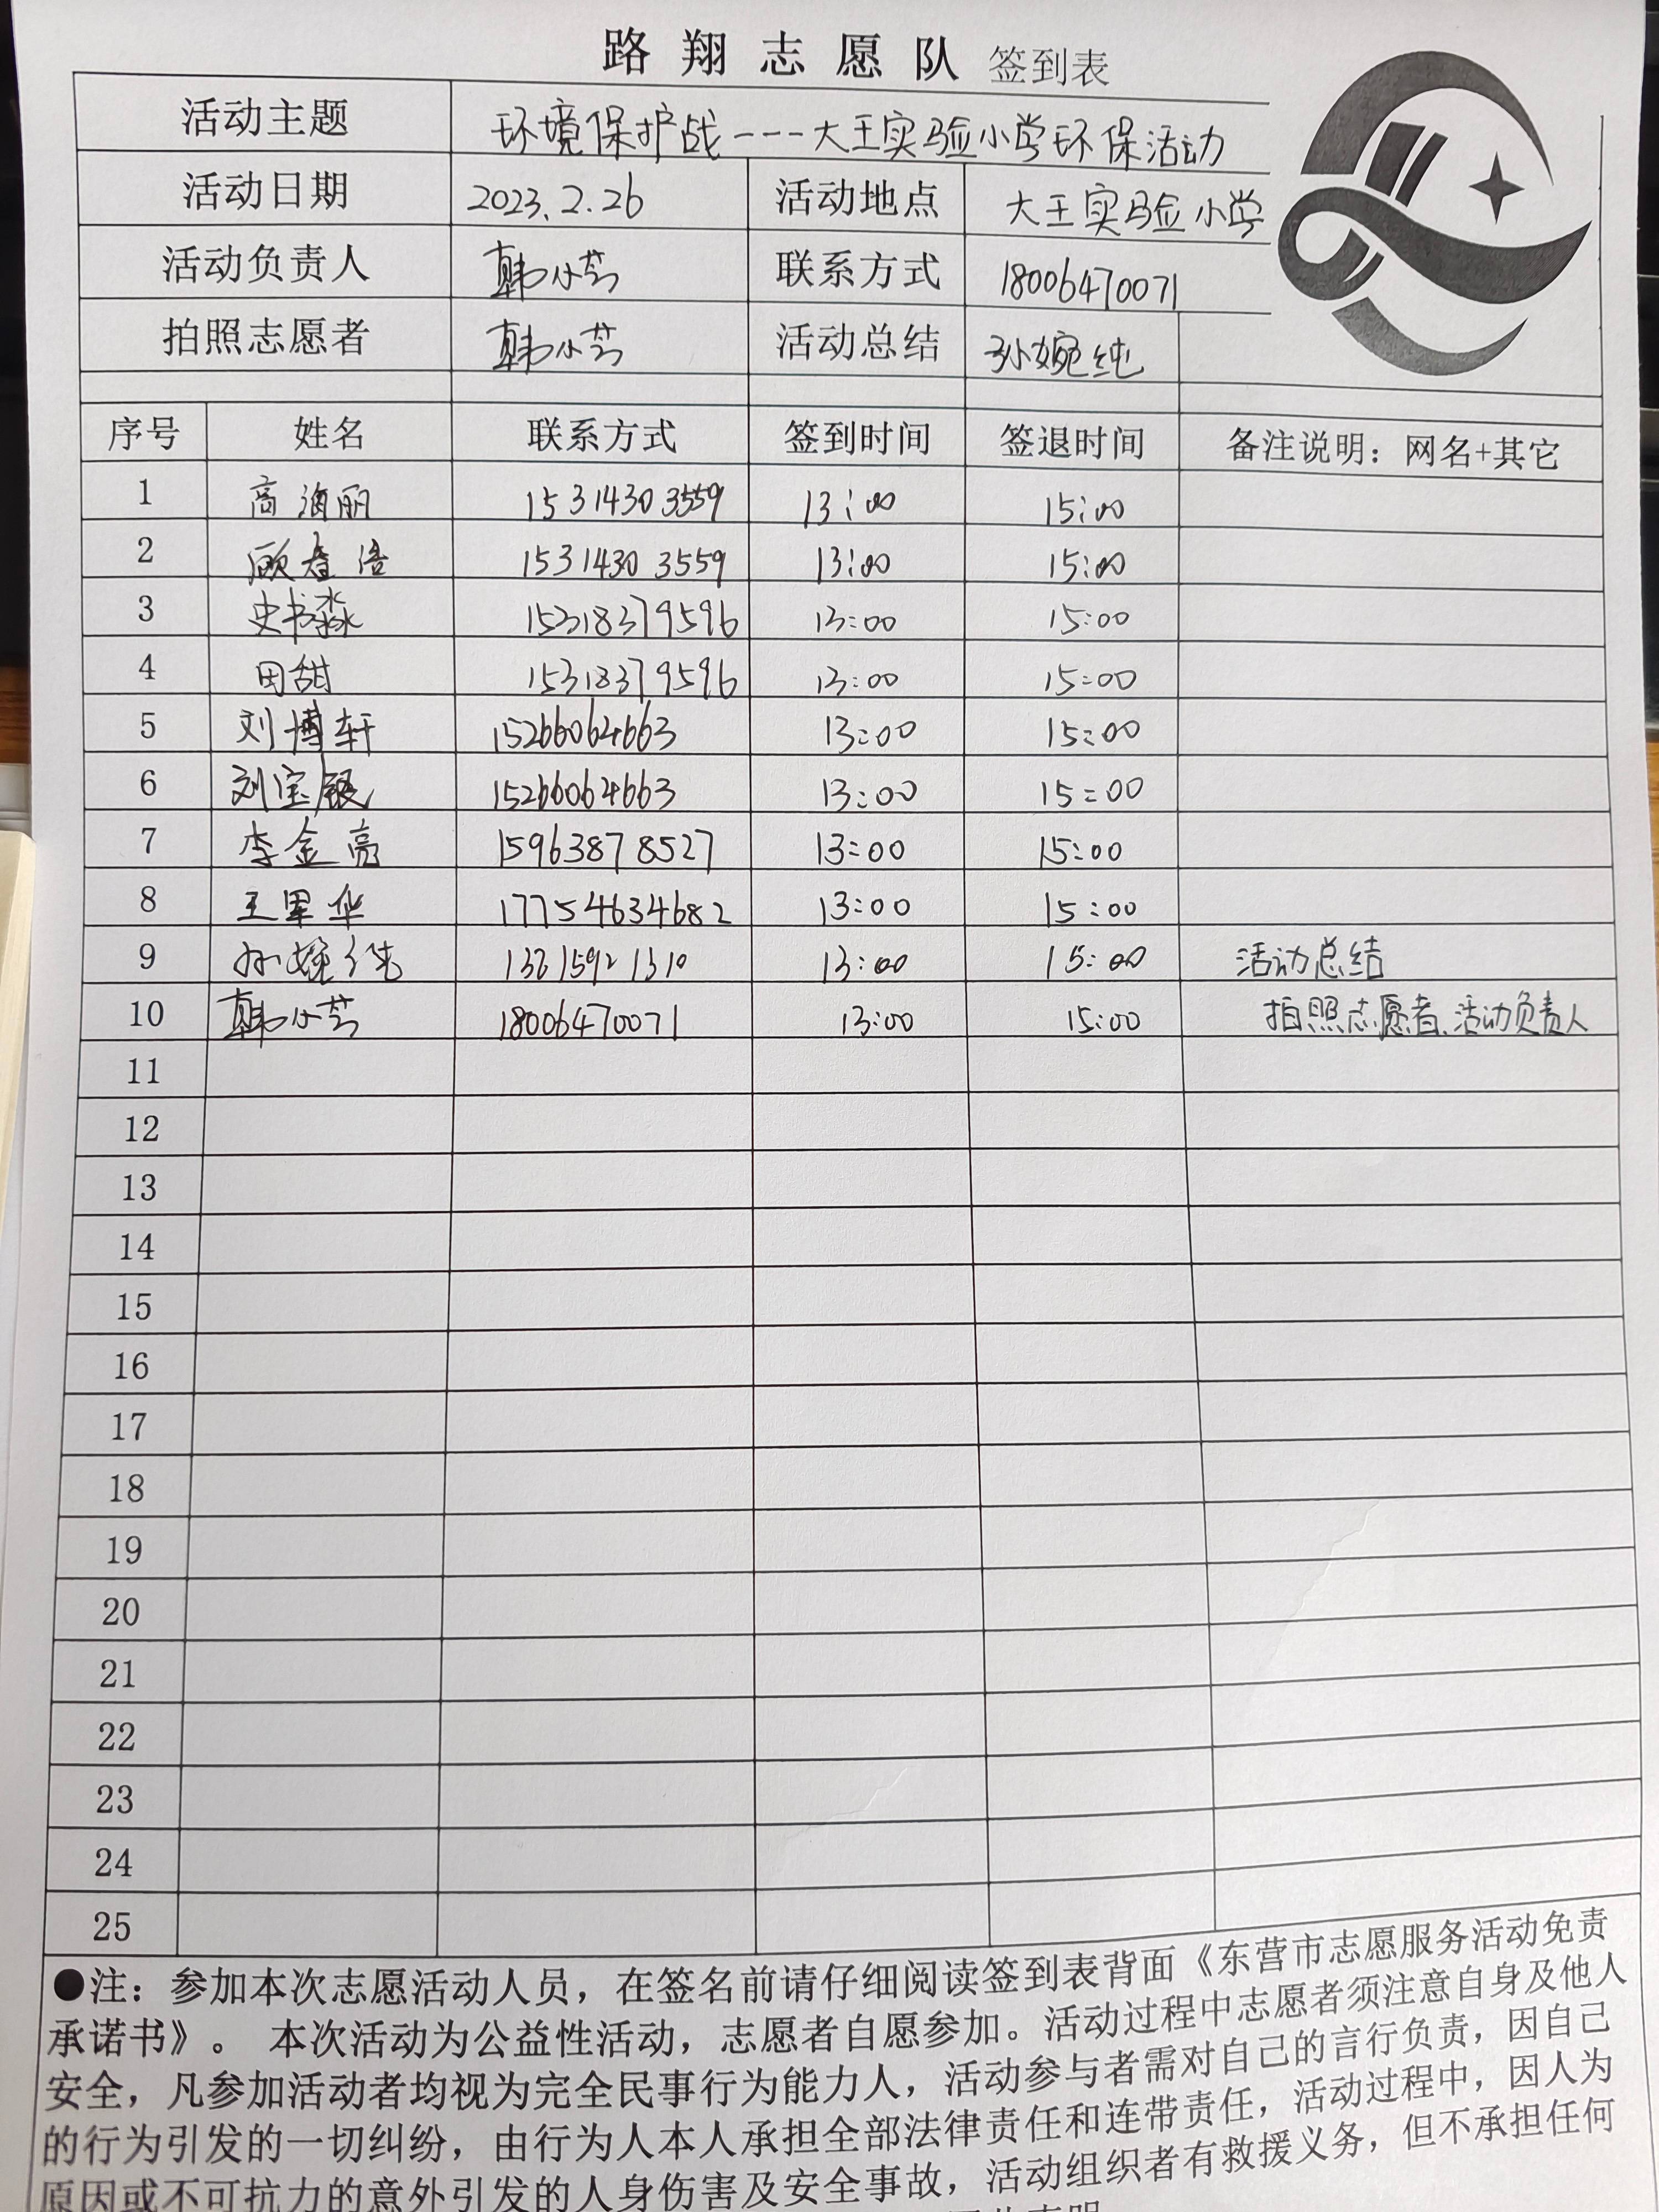 路翔志愿队 签到表
活动主题 环境保护战---大王实验小学环保活动
活动日期 2023.2.26 活动地点 大王实验小学
活动负责人 韩小芸 联系方式 18006470071
拍照志愿者 韩小芸 活动总结 孙婉纯
序号 姓名 联系方式 签到时间 签退时间 备注说明：网名+其它
1 高海丽 15314303559 13:00 15:00
2 15314303559 13:00 15:00
3 史书淼 15318379596 13:00 15:00
4 田甜 15318379596 13:00 15:00
5 刘博轩 15266064663 13:00 15:00
6 刘宝银 15266064663 13:00 15:00
7 李金亮 15963878527 13:00 15:00
8 王军华 17754634682 13:00 15:00
9 孙婉纯 13:00 15:00 活动总结
10 韩小芸 18006470071 13:00 15:00 拍照志愿者、活动负责人
11
12
13
14
15
16
17
18
19
20
21
22
23
24
25
●注：参加本次志愿活动人员，在签名前请仔细阅读签到表背面《东营市志愿服务活动免责
承诺书》。 本次活动为公益性活动，志愿者自愿参加。活动过程中志愿者须注意自身及他人
安全，凡参加活动者均视为完全民事行为能力人，活动参与者需对自己的言行负责，因自己
的行为引发的一切纠纷，由行为人本人承担全部法律责任和连带责任，活动过程中，因人为
原因或不可抗力的意外引发的人身伤害及安全事故，活动组织者有救援义务，但不承担任何